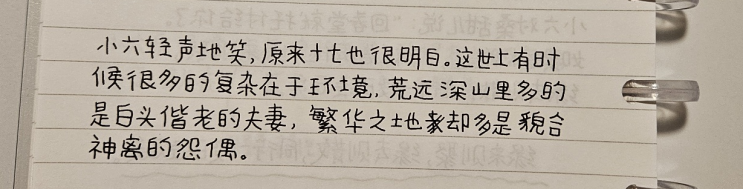 小六轻声地笑,原来十七也很明白。这世上有时
候很多的复杂在于环境,荒远深山里多的
是白头偕老的夫妻,繁华之地却多是貌合
神离的怨偶。